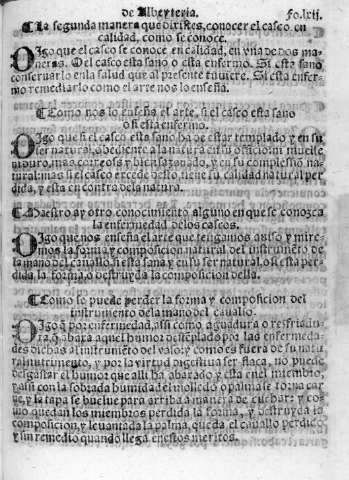 de Albeyteria. Fo.lxij.
¶ La segunda manera que dixistes, conocer el casco en
calidad, como se conoce.
Digo que el casco se conoce en calidad, en vna de dos ma
neras. O el casco esta sano o esta enfermo. Si esta sano
conseruarlo en la salud que al presente tuuiere. Si esta enfer-
mo remediarlo como el arte nos lo enseña.
¶ Como nos lo enseña el arte, si el casco esta sano
o si esta enfermo.
Digo que si el casco esta sano ha de estar templado y en su
ser natural, obediente a la natura en su officio: ni muelle
ni duro, mas correoso y bien sazonado, y en su complession na
tural: mas si el casco excede desto, tiene su calidad natural per
dida, y esta en contra de la natura.
¶ Maestro ay otro conocimiento alguno en que se conozca
la enfermedad de los cascos.
Digo que nos enseña el arte que tengamos auiso y mire-
mos la forma y composicion natural del instrumento de
la mano del cauallo, si esta sana y en su ser natural, o si esta per
dida la forma, o destruyda la composicion della.
¶ Como se puede perder la forma y composicion del
instrumento de la mano del cauallo.
Digo q̃ por enfermedad, assi como aguadura o resfriadu-
ra, q̃ abaxa aquel humor destemplado por las enfermeda
des dichas al instrumẽto del vaso: y como es fuera de su natu
ral nutrimento, y por la virtud digestiua ser flaca, no puede
desgastar el humor que alli ha abaxado y esta en el miembro,
y assi con la sobrada humidad el molledo o palma se torna car
ne, y la tapa se buelue para arriba a manera de cuchar: y co-
mo quedan los miembros perdida la forma, y destruyda la
composicion, y leuantada la palma, queda el cauallo perdido
y sin remedio quando llega en estos meritos.